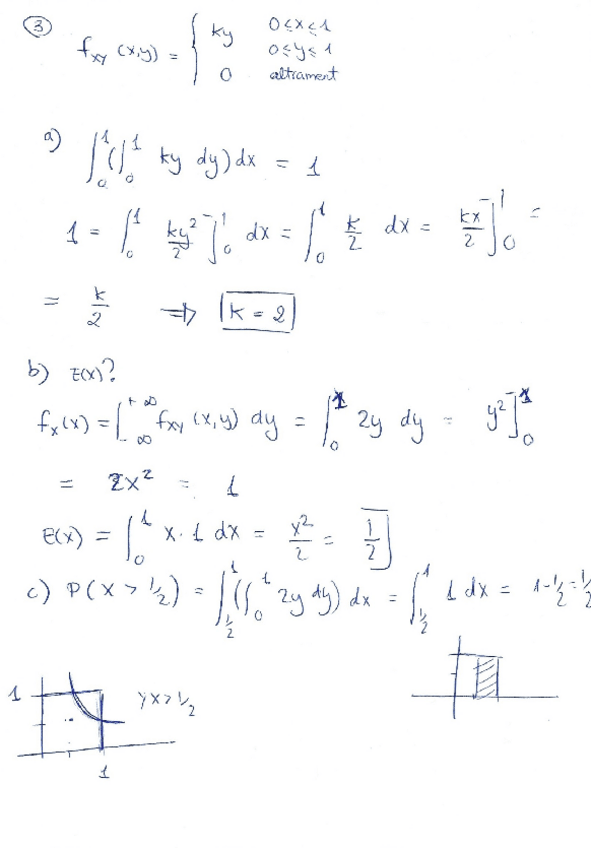 3
f_xy (x,y) = { ky 0≤x≤1
0≤y≤1
0 altrament
a) ∫₀¹ (∫₀¹ ky dy) dx = 1
1 = ∫₀¹ ky²/2 ]₀¹ dx = ∫₀¹ k/2 dx = kx/2 ]₀¹ =
= k/2 ⇒ k = 2
b) E(x)?
f_x(x) = ∫_{-∞}^{+∞} f_xy (x,y) dy = ∫₀¹ 2y dy = y² ]₀¹
= 2x² = 1
E(x) = ∫₀¹ x·1 dx = x²/2 = 1/2
c) P(X > 1/2) = ∫_{1/2}^1 (∫₀¹ 2y dy) dx = ∫_{1/2}^1 1 dx = 1-1/2 = 1/2
1
yx > 1/2
1